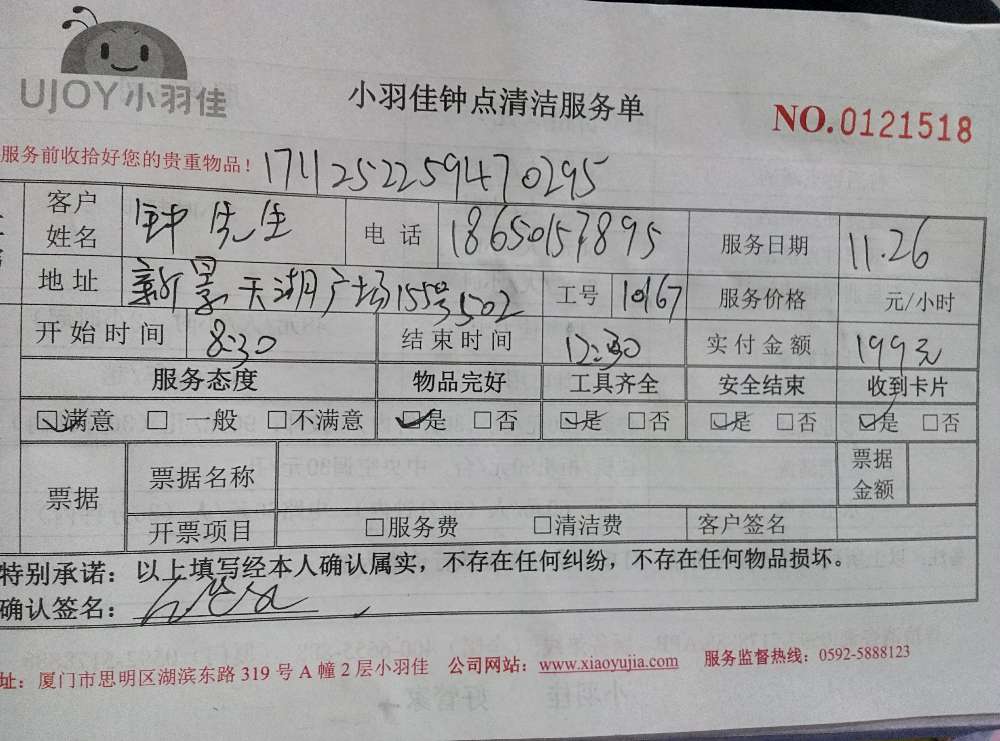 UJOY小羽佳
小羽佳钟点清洁服务单
NO.0121518
服务前收拾好您的贵重物品！ 171125225947 0295
客户姓名 钟先生 电话 18650157895 服务日期 11.26
地址 新景天湖广场155号502 工号 10167 服务价格 元/小时
开始时间 8:30 结束时间 12:30 实付金额 199元
服务态度 物品完好 工具齐全 安全结束 收到卡片
☑满意 □一般 □不满意 ☑是 □否 ☑是 □否 ☑是 □否 ☑是 □否
票据 票据名称 票据金额
开票项目 □服务费 □清洁费 客户签名
特别承诺：以上填写经本人确认属实，不存在任何纠纷，不存在任何物品损坏。
确认签名：
址：厦门市思明区湖滨东路 319 号 A 幢 2 层小羽佳 公司网站：www.xiaoyujia.com 服务监督热线：0592-5888123